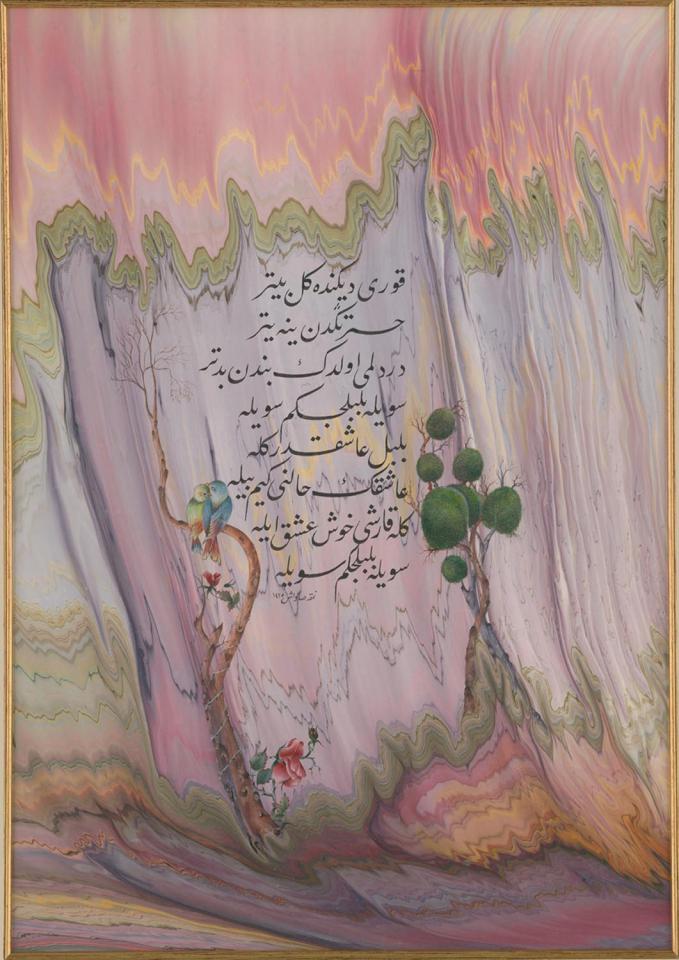 قوری دیكنده كل بیتر
حسرتكدن ینه یتر
دردلمی اولدك بندن بدتر
سویله بلبلجكم سویله
بلبل عاشقدر كله
عاشقك حالنی كیم بیله
كله قارشی خوش عشق ایله
سویله بلبلجكم سویله